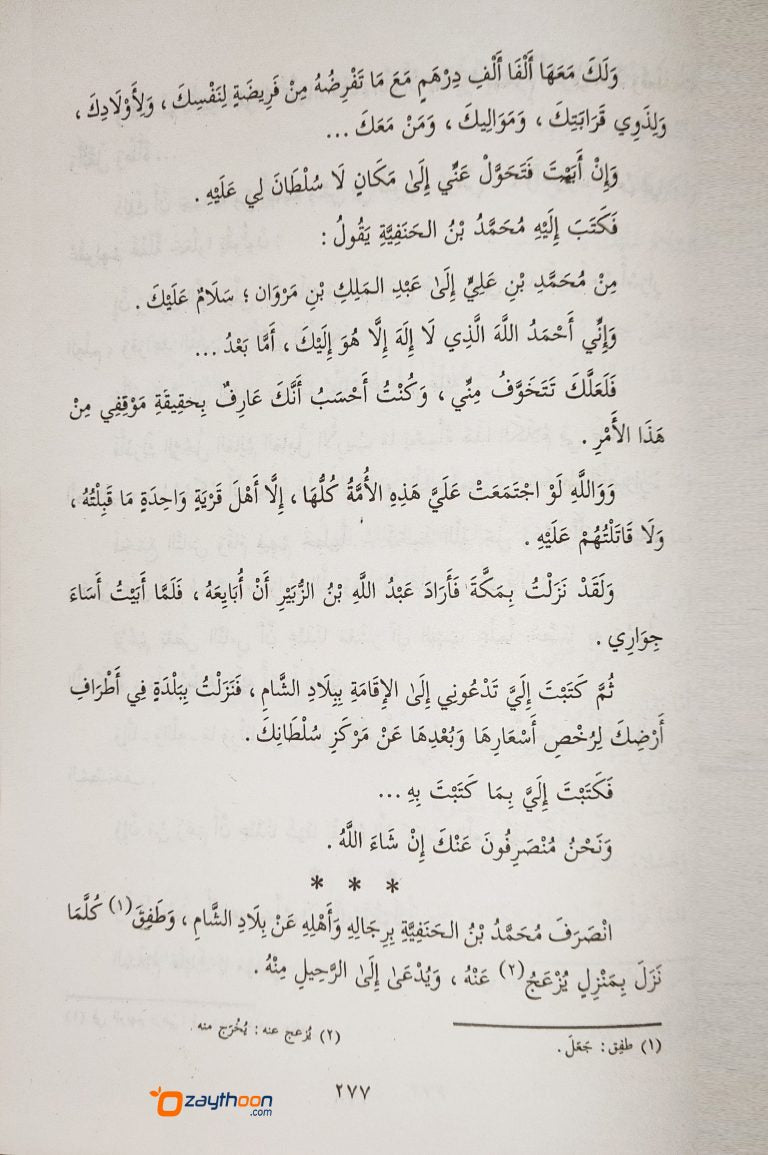 وَلَكَ مَعَهَا أَلْفَا أَلْفِ دِرْهَمٍ مَعَ مَا تَفْرِضُهُ مِنْ فَرِيضَةٍ لِنَفْسِكَ ، وَلِأَوْلَادِكَ ،
وَلِذَوِي قَرَابَتِكَ ، وَمَوَالِيكَ ، وَمَنْ مَعَكَ ...
وَإِنْ أَبَيْتَ فَتَحَوَّلْ عَنِّي إِلَىٰ مَكَانٍ لَا سُلْطَانَ لِي عَلَيْهِ .
فَكَتَبَ إِلَيْهِ مُحَمَّدُ بْنُ الحَنَفِيَّةِ يَقُولُ :
مِنْ مُحَمَّدِ بْنِ عَلِيٍّ إِلَىٰ عَبْدِ المَلِكِ بْنِ مَرْوَان ؛ سَلَامٌ عَلَيْكَ .
وَإِنِّي أَحْمَدُ اللَّهَ الَّذِي لَا إِلَهَ إِلَّا هُوَ إِلَيْكَ ، أَمَّا بَعْدُ ...
فَلَعَلَّكَ تَتَخَوَّفُ مِنِّي ، وَكُنْتُ أَحْسَبُ أَنَّكَ عَارِفٌ بِحَقِيقَةِ مَوْقِفِي مِنْ
هَذَا الأَمْرِ .
وَوَاللَّهِ لَوْ اجْتَمَعَتْ عَلَيَّ هَذِهِ الأُمَّةُ كُلُّهَا ، إِلَّا أَهْلَ قَرْيَةٍ وَاحِدَةٍ مَا قَبِلْتُهُ ،
وَلَا قَاتَلْتُهُمْ عَلَيْهِ .
وَلَقَدْ نَزَلْتُ بِمَكَّةَ فَأَرَادَ عَبْدُ اللَّهِ بْنُ الزُّبَيْرِ أَنْ أُبَايِعَهُ ، فَلَمَّا أَبَيْتُ أَسَاءَ
جِوَارِي .
ثُمَّ كَتَبْتَ إِلَيَّ تَدْعُونِي إِلَىٰ الإِقَامَةِ بِبِلَادِ الشَّامِ ، فَنَزَلْتُ بِبَلْدَةٍ فِي أَطْرَافِ
أَرْضِكَ لِرُخْصِ أَسْعَارِهَا وَبُعْدِهَا عَنْ مَرْكَزِ سُلْطَانِكَ .
فَكَتَبْتَ إِلَيَّ بِمَا كَتَبْتَ بِهِ ...
وَنَحْنُ مُنْصَرِفُونَ عَنْكَ إِنْ شَاءَ اللَّهُ .
* * *
انْصَرَفَ مُحَمَّدُ بْنُ الحَنَفِيَّةِ بِرِجَالِهِ وَأَهْلِهِ عَنْ بِلَادِ الشَّامِ ، وَطَفِقَ (١) كُلَّمَا
نَزَلَ بِمَنْزِلٍ يُزْعَجُ (٢) عَنْهُ ، وَيُدْعَىٰ إِلَىٰ الرَّحِيلِ مِنْهُ .
(١) طفِق : جَعَلَ . (٢) يُزعج عنه : يُخْرَج منه .
٢٧٧
zaythoon
.com